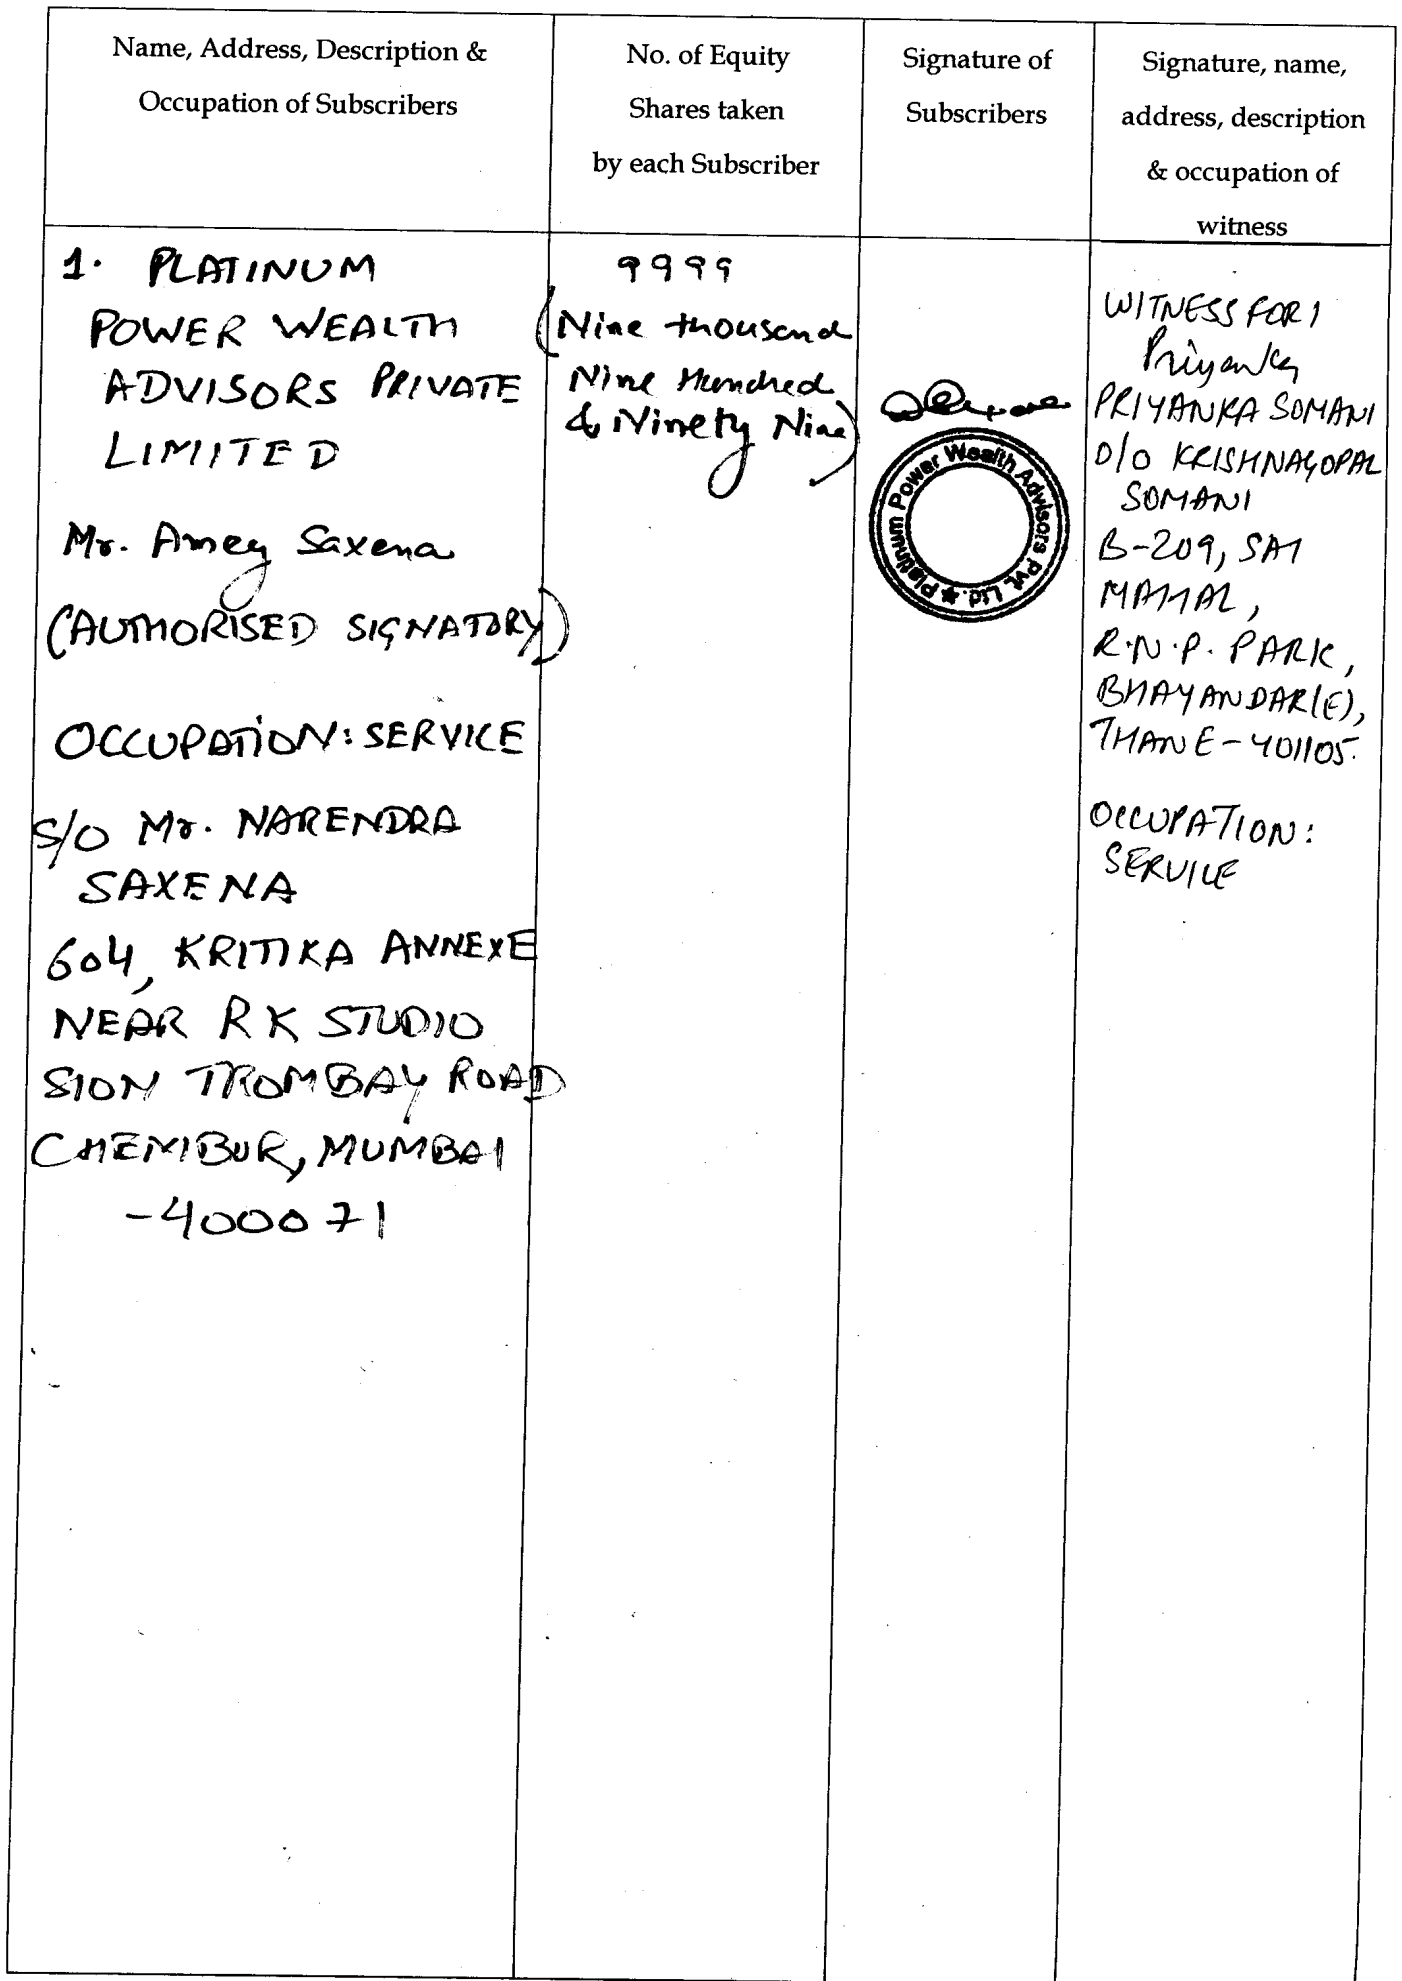 Name, Address, Description &
Occupation of Subscribers
No. of Equity
Shares taken
by each Subscriber
Signature of
Subscribers
Signature, name,
address, description
& occupation of
witness
1. PLATINUM
POWER WEALTH
ADVISORS PRIVATE
LIMITED
Mr. Amey Saxena
(AUTHORISED SIGNATORY)
OCCUPATION: SERVICE
S/O Mr. NARENDRA
SAXENA
604, KRITIKA ANNEXE
NEAR RK STUDIO
SION TROMBAY ROAD
CHEMBUR, MUMBAI
-400071
9999
(Nine thousand
Nine Hundred
& Ninety Nine)
Platinum Power Wealth Advisors Pvt. Ltd. ★
WITNESS FOR 1
Priyanka
PRIYANKA SOMANI
D/O KRISHNAGOPAL
SOMANI
B-209, SAI
MAHAL,
R.N.P. PARK,
BHAYANDAR(E),
THANE-401105.
OCCUPATION:
SERVICE